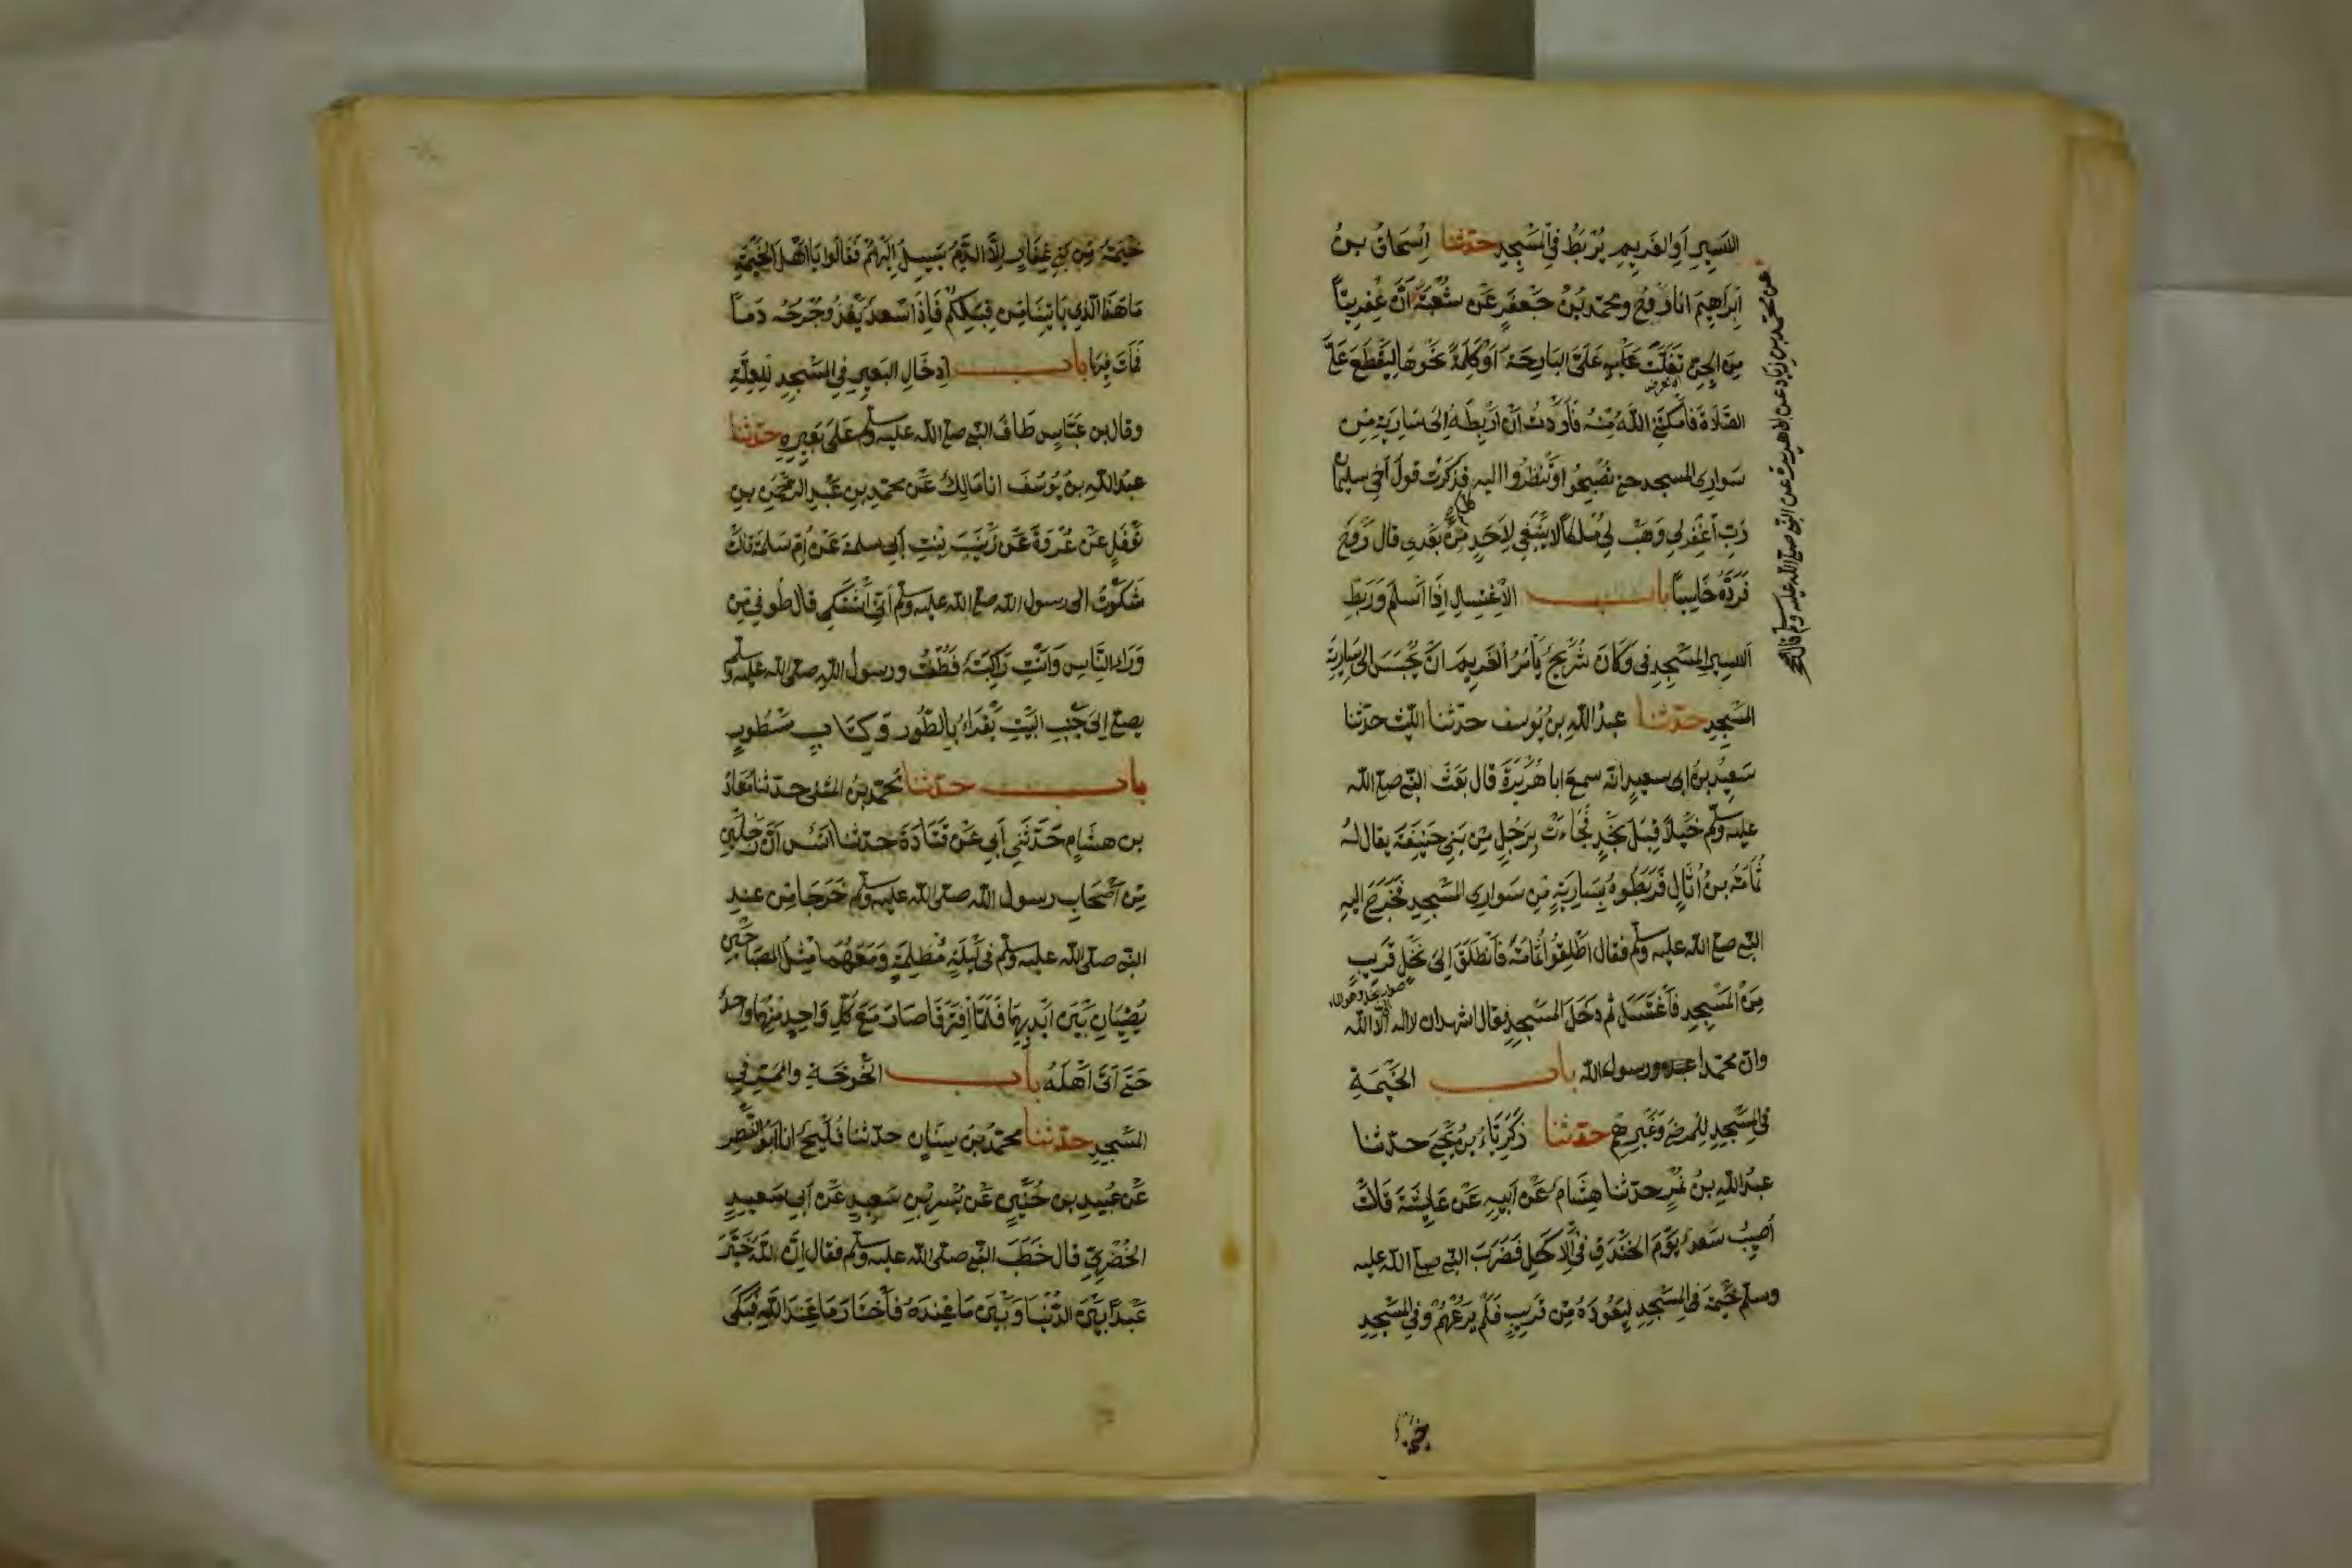 الاسيرِ اَوِالغَريمِ يُرْبَطُ فِي المَسْجِدِ حدّثنا اِسْحَاقُ بنُ
اِبْرَاهِيمَ انا رَوْحٌ ومحمّد بنُ جَعفَرٍ عَن شُعْبَةَ اَنَّ عِفْرِيتًا
مِنَ الجِنِّ تَفَلَّتَ عَلَيَّ البَارِحَةَ اَوْ كَلِمَةً نَحْوَهَا لِيَقْطَعَ عَلَيَّ
الصَّلاةَ فَاَمْكَنَنِي اللّهُ مِنْهُ فَاَرَدْتُ اَنْ اَرْبِطَهُ اِلى سَارِيَةٍ مِن
سَوارِي المسجد حتى تُصْبِحُوا وَتَنْظُرُوا اليه فذَكَرْتُ قولَ اَخِي سليمان
رَبِّ اغْفِرلِي وَهَبْ لِي مُلكًا لا يَنْبَغِي لِاَحَدٍ مِنْ بَعْدِي قال رَوْحٌ
فَرَدَّهُ خَاسِئًا بابُ الاغْتِسالِ اِذَا اَسْلَمَ وَرَبْطِ
الاسيرِ المَسْجِدِ في وَكَانَ شُرَيْحٌ يَأْمُرُ الغَرِيمَ اَنْ يُحْبَسَ الى سَارِيَةِ
المَسْجِدِ حدّثنا عبدُ اللّهِ بنُ يُوسف حدّثنا اللّيث حدّثنا
سَعِيدُ بنُ ابى سعيدٍ انّه سمع ابا هُرَيْرَةَ قال بَعَثَ النّبي صلى اللّه
عليه وسلّم خَيْلًا قِبَلَ نَجْدٍ فَجَاءَتْ بِرَجُلٍ مِن بَنِي حَنِيفَةَ يقال لهُ
ثُمَامَةُ بنُ اُثَالٍ فَرَبَطُوهُ بِسَارِيَةٍ مِن سَوارِي المَسْجِدِ فَخَرَجَ اليهِ
النّبي صلى اللّه عليه وسلّم فقال اَطْلِقُوا ثُمَامَةَ فَانْطَلَقَ اِلى نَخْلٍ قَرِيبٍ
مِنَ المَسْجِدِ فَاغْتَسَلَ ثم دَخَلَ المَسْجِدَ فقال اشهد ان لا اله الّا اللّه
وانّ محمّدا عبده ورسول اللّه بابُ الخَيْمَةِ
في المَسْجِدِ لِلمرضى وَغَيرِهِم حدّثنا زَكَرِيّاءُ بنُ يَحْيَى حدّثنا
عبدُ اللّهِ بنُ نُمَيْرٍ حدّثنا هِشَامٌ عَن اَبِيهِ عَن عَايِشَةَ قَالَتْ
اُصِيبَ سَعدٌ يَوْمَ الخَنْدَقِ فِي الاَكْحَلِ فَضَرَبَ النّبي صلى اللّه عليه
وسلّم خَيْمَةً في المَسْجِدِ لِيَعُودَهُ مِن قَرِيبٍ فَلَمْ يَرُعْهُمْ وَفِي المَسْجِدِ
عن محمّد بن زياد عن ابى هريرة عن النبي صلى اللّه عليه وسلم قال
خَيْمَةٌ مِن بَنِي غِفَارٍ اِلَّا الدَّمُ يَسِيلُ اِلَيْهِمْ فَقَالُوا يَا اَهْلَ الخَيْمَةِ
مَا هَذَا الّذِي يَاتِينَا مِن قِبَلِكُمْ فَاِذَا سَعدٌ يَغْذُو جُرْحُهُ دَمًا
فَمَاتَ مِنهَا بابُ اِدخَالِ البَعِيرِ فِي المَسْجِدِ لِلعِلَّةِ
وقال بن عَبّاسٍ طَافَ النّبي صلى اللّه عليه وسلّم عَلى بَعِيرِهِ حدّثنا
عبدُ اللّهِ بنُ يُوسُفَ انا مَالِكٌ عَن محمّدِ بنِ عَبْدِ الرَّحْمَنِ بنِ
نَوْفَلٍ عَن عُرْوَةَ عَن زَيْنَبَ بِنْتِ اَبِي سلمة عَن اُمِّ سَلمَةَ قالت
شَكَوْتُ الى رسول اللّه صلى اللّه عليه وسلّم اَنِّي اَشْتَكِي قال طُوفِي مِن
وَرَاءِ النّاسِ وَاَنْتِ رَاكِبَةٌ فَطُفْتُ ورسولُ اللّهِ صلّى اللّه عليه وسلّم
يصلي اِلى جَنْبِ البَيْتِ يَقْرَأُ بِالطُّورِ وَكِتَابٍ مَسْطُورٍ
بابُ حدّثنا محمّد بنُ المثنى حدّثنا مُعَاذ
بن هشَامٍ حَدّثَنِي اَبِي عَن قَتَادَةَ حدّثنا انَس اَنّ رَجُلَيْنِ
مِن اَصْحَابِ رسول اللّه صلّى اللّه عليه وسلّم خَرَجَا مِن عِندِ
النّبي صلّى اللّه عليه وسلّم فِي لَيْلَةٍ مُظْلِمَةٍ وَمَعَهُمَا مِثْلُ المِصْبَاحَيْنِ
يُضِيْئَانِ بَيْنَ اَيْدِيهِمَا فَلَمّا افْتَرَقَا صَارَ مَعَ كُلِّ وَاحِدٍ مِنهُمَا وَاحِدٌ
حَتّى اَتَى اَهْلَهُ بابُ الخَوْخَةِ والمَمَرِّ فِي
المَسْجِدِ حدّثنا محمّدُ بنُ سِنَانٍ حدّثنا فُلَيْحٌ انا اَبُو النَّضْرِ
عَن عُبَيدِ بنِ حُنَيْنٍ عَن بُسْرِ بْنِ سَعِيدٍ عَن اَبِي سَعِيدٍ
الخُدْرِيِّ قال خَطَبَ النّبي صلّى اللّه عليه وسلّم فقال اِنَّ اللّهَ خَيَّرَ
عَبْدًا بَيْنَ الدُّنْيَا وَبَيْنَ مَا عِنْدَهُ فَاخْتَارَ مَا عِنْدَ اللّهِ فَبَكَى